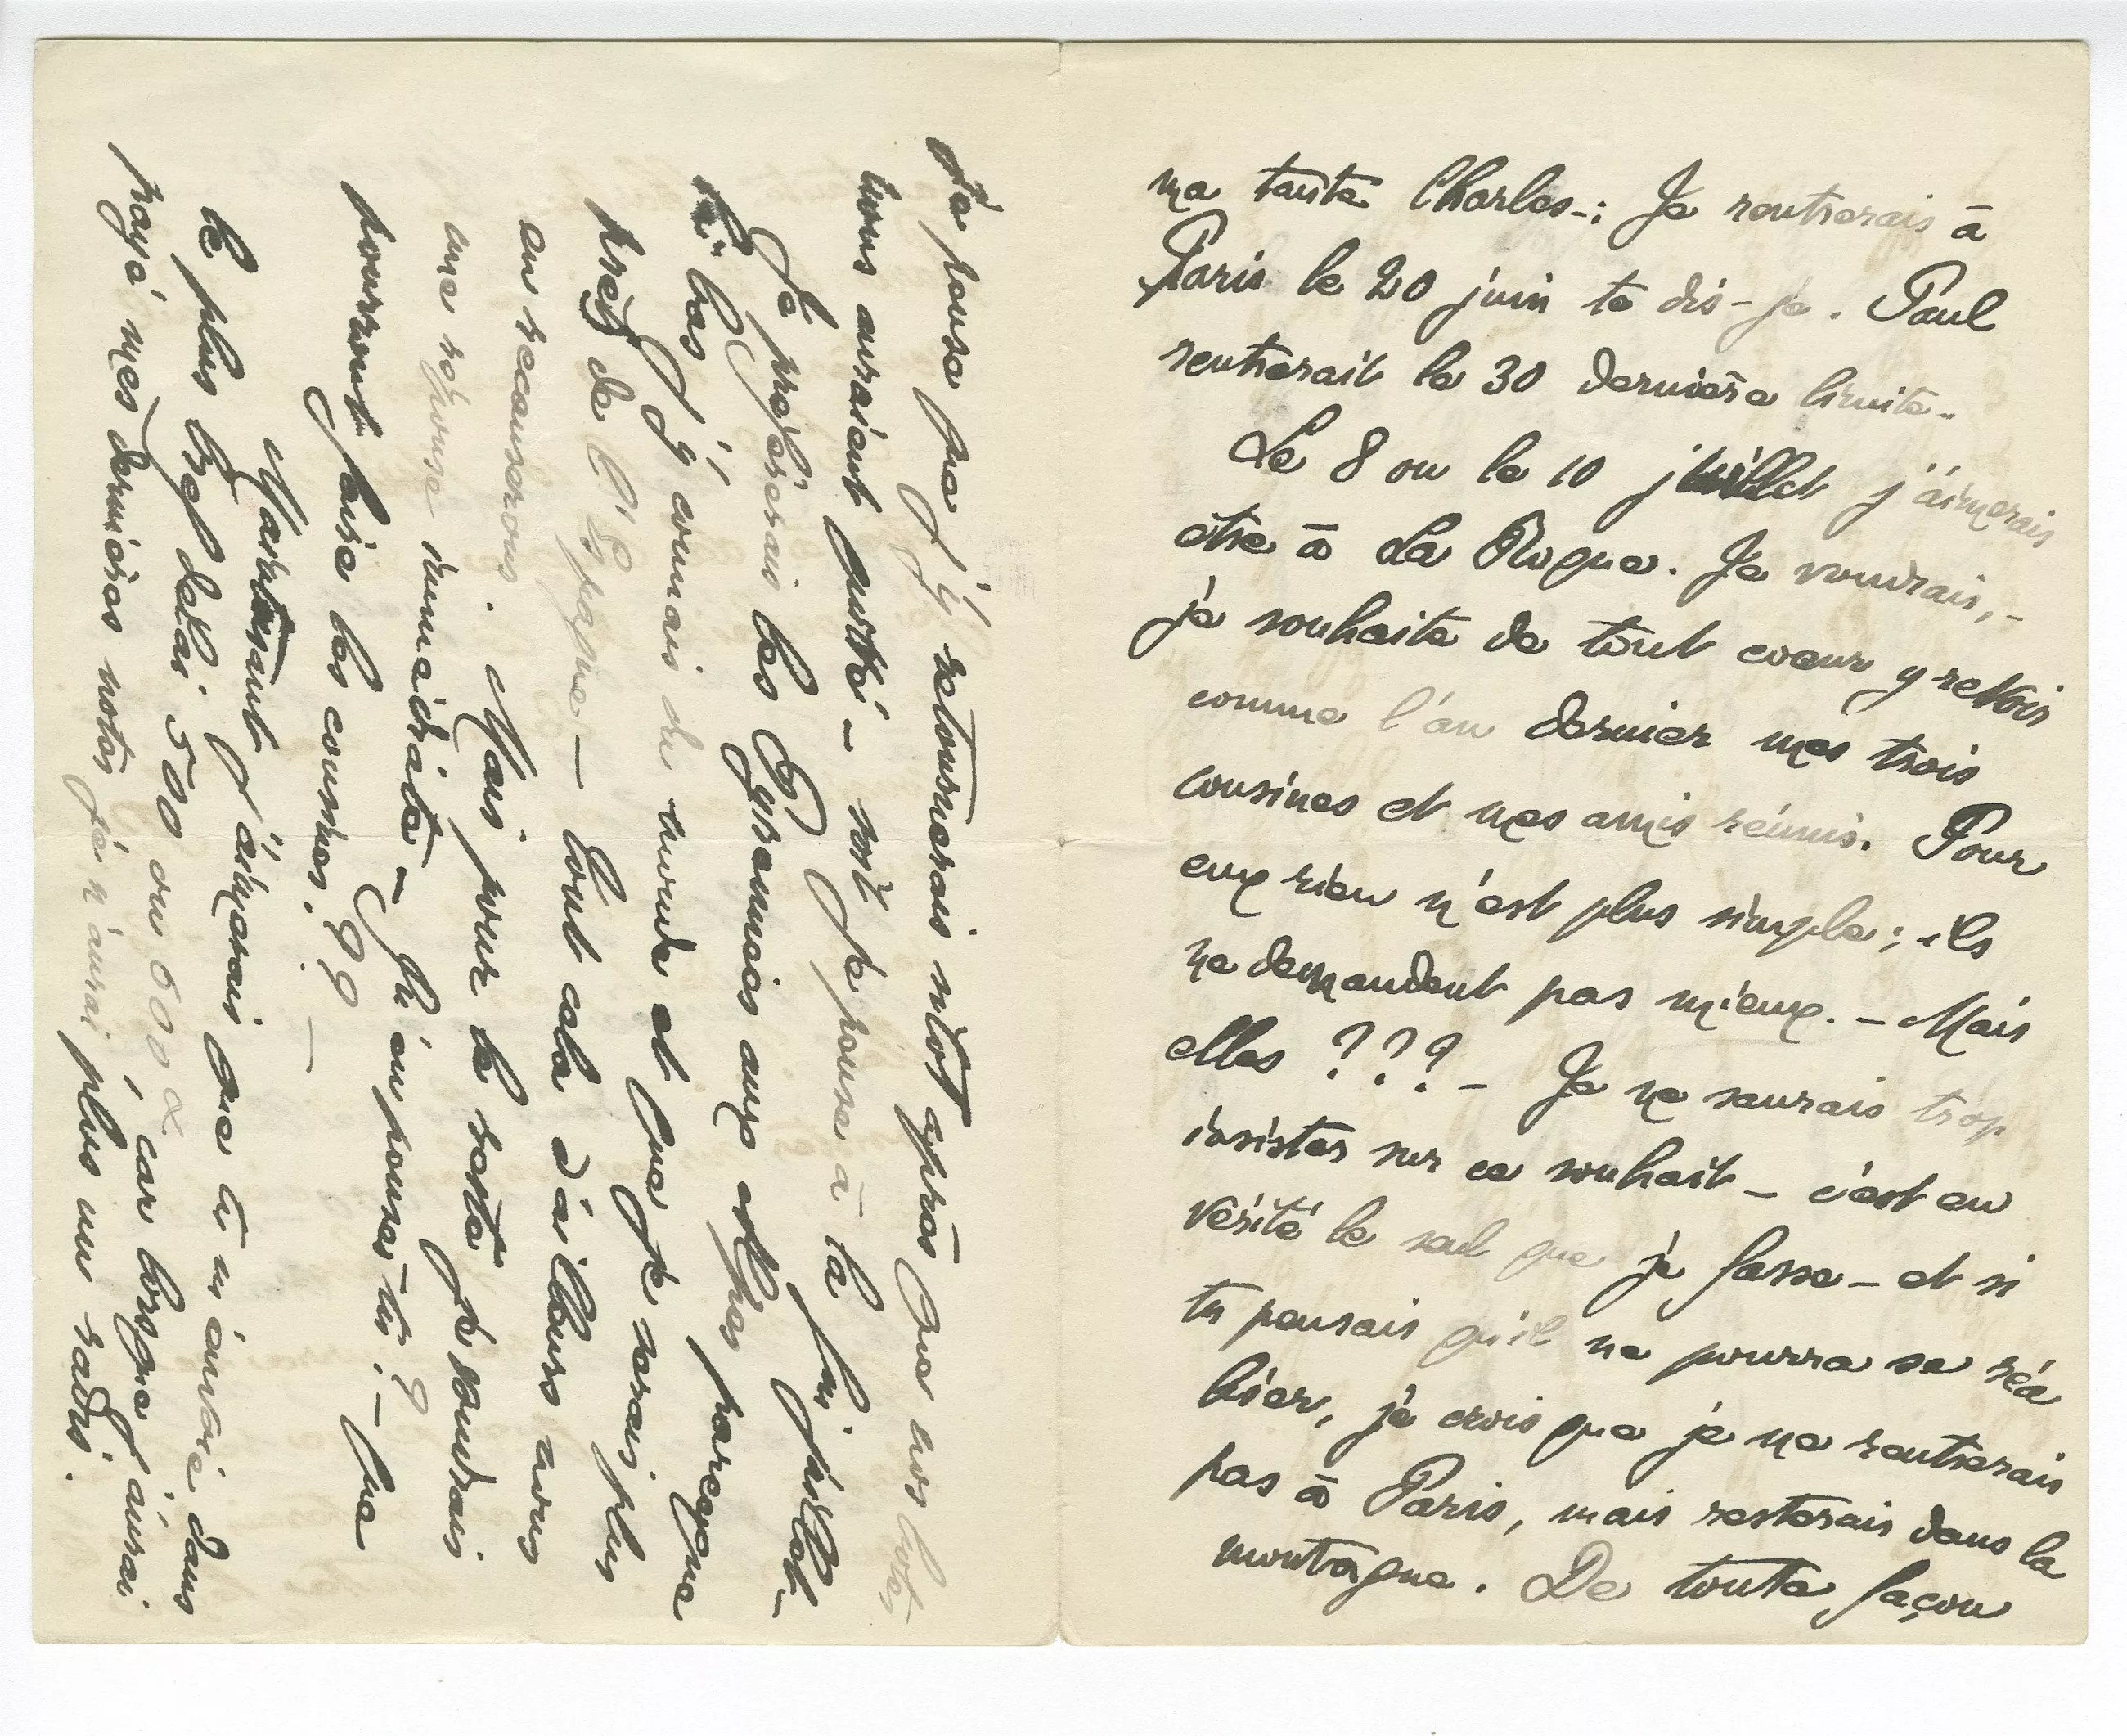 ma tante Charles-; Je rentrerais à
Paris le 20 juin te dis-je. Paul
rentrerait le 30 dernière limite-
Le 8 ou le 10 juillet j'aimerais
être à La Rogue. Je voudrais, -
je souhaite de tout coeur y revoir
comme l'an dernier mes trois
cousines et mes amis réunis. Pour
eux rien n'est plus simple; ils
ne demandent pas mieux. - Mais
elles ??? - Je ne saurais trop
insister sur ce souhait - c'est en
vérité le seul que je fasse - et si
tu pensais qu'il ne pourra se réa
liser, je crois que je ne rentrerais
pas à Paris, mais resterais dans la
montagne. De toute façon
Je pense que j'y retournerais sitôt après que nos hôtes
nous auraient quitté - soit je pense à la fin juillet -
Je préfèrerais les Pyrennées aux Alpes parceque
là bas j'y connais du monde et que je serais plus
près de l'Espagne - tout cela d'ailleurs nous
en recauserons. Mais pour je voudrais
une réponse immédiate - Qu'en penses-tu ? - Que
pourront faire les cousines.?? -
Maintenant j'aimerais que tu m'envoie dans
le plus bref délai 500 ou 600, car lorsque j'aurai
payé mes dernières notes je n'aurai plus un radis.